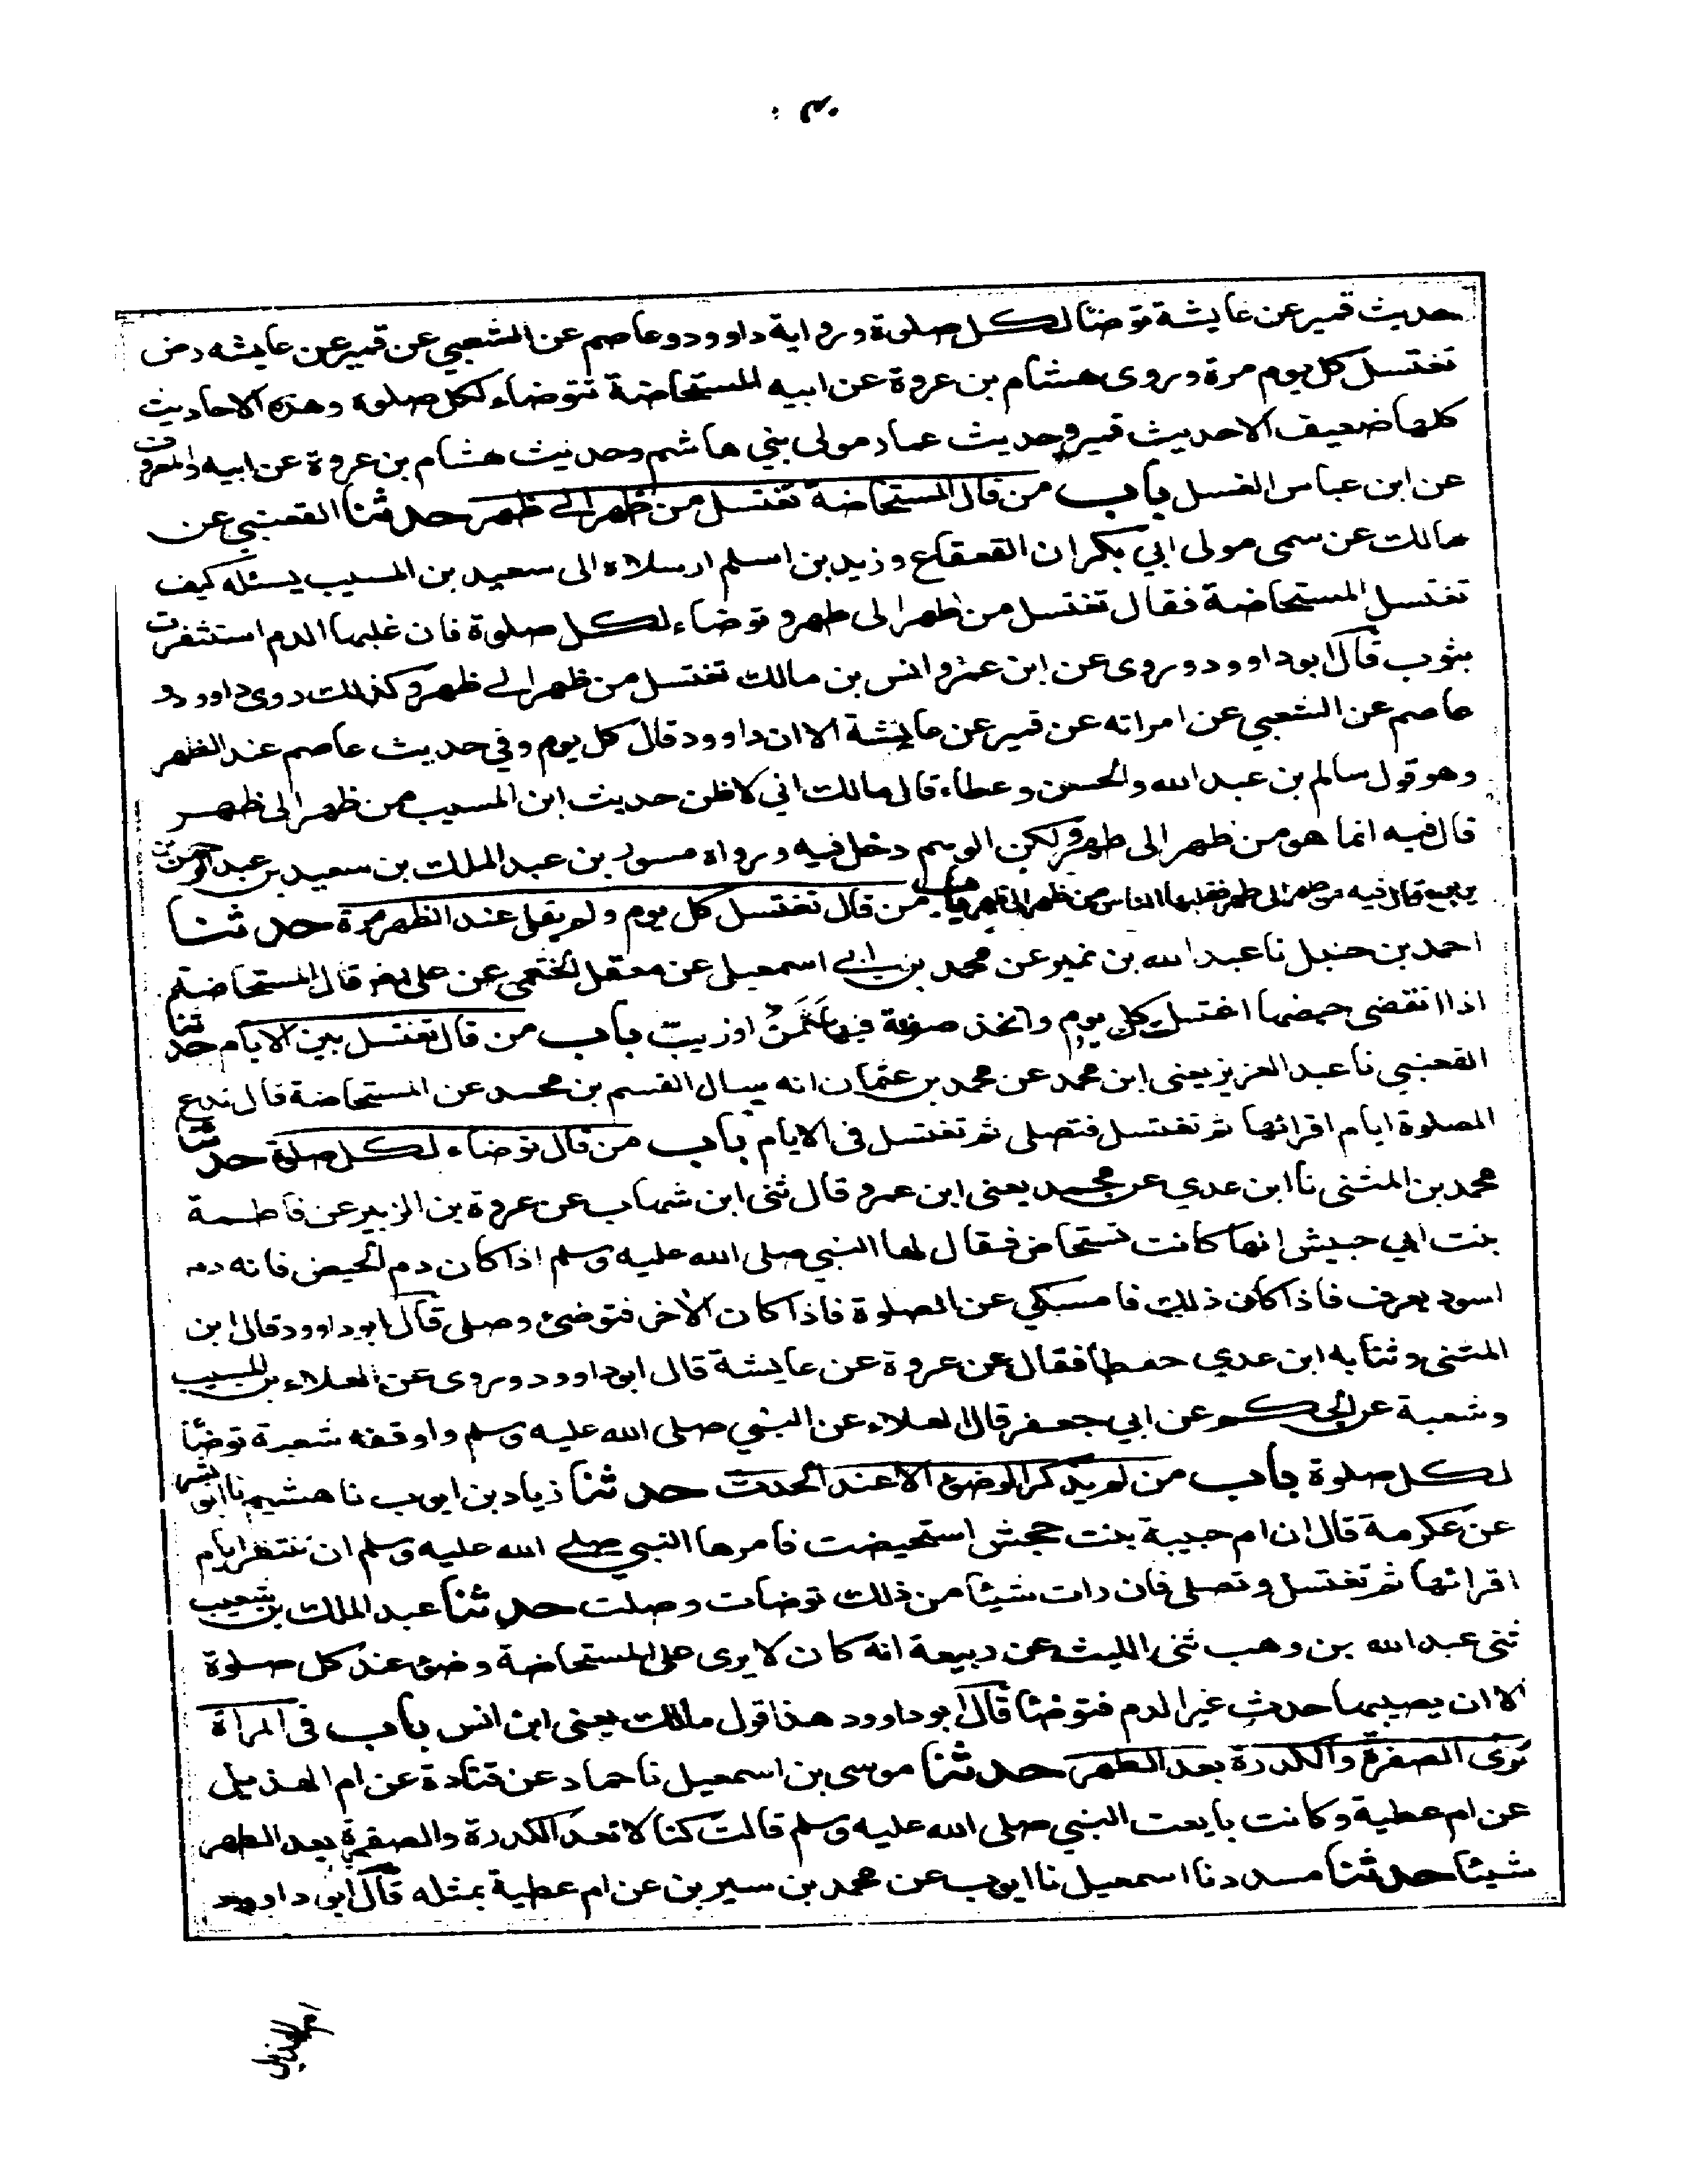 حديث قمير عن عايشة توضئا لكل صلوة ورواية داوود وعاصم عن الشعبي عن قمير عن عايشه رض
تغتسل كل يوم مرة وروى هشام بن عروة عن ابيه المستحاضة تتوضاء لكل صلوة وهذه الاحاديث
كلها ضعيف الا حديث قمير وحديث عمار مولى بني هاشم وحديث هشام بن عروة عن ابيه والمعروف
عن ابن عباس الغسل باب من قال المستحاضة تغتسل من ظهر الى ظهر حدثنا القعنبي عن
مالك عن سمى مولى ابي بكر ان القعقاع وزيد بن اسلم ارسلاه الى سعيد بن المسيب يسئله كيف
تغتسل المستحاضة فقال تغتسل من ظهر الى ظهر وتوضاء لكل صلوة فان غلبها الدم استثفرت
بثوب قال ابو داوود وروى عن ابن عمر وانس بن مالك تغتسل من ظهر الى ظهر وكذلك روى داوود و
عاصم عن الشعبي عن امراته عن قمير عن عايشة الا ان داوود قال كل يوم وفي حديث عاصم عند الظهر
وهو قول سالم بن عبد الله والحسن وعطاء قال مالك اني لاظن حديث ابن المسيب من ظهر الى ظهر
قال فيه انما هو من طهر الى طهر ولكن الوهم دخل فيه ورواه مسور بن عبد الملك بن سعيد بن عبد الرحمن
بن يربوع قال فيه من طهر الى طهر فقلبها الناس من ظهر الى ظهر باب من قال تغتسل كل يوم ولم يقل عند الظهر مرة حدثنا
احمد بن حنبل نا عبد الله بن نمير عن محمد بن ابي اسمعيل عن معقل الخثعمي عن على رض قال المستحاضة
اذا انقضى حيضها اغتسلت كل يوم واتخذ صوفة فيها سمن او زيت باب من قال تغتسل بين الايام حدثنا
القعنبي نا عبد العزيز يعنى ابن محمد عن محمد بن عثمان انه سال القسم بن محمد عن المستحاضة قال تدع
الصلوة ايام اقرائها ثم تغتسل فتصلى ثم تغتسل فى الايام باب من قال توضاء لكل صلوة حدثنا
محمد بن المثنى نا ابن عدي عن محمد يعنى ابن عمرو قال ثنى ابن شهاب عن عروة بن الزبير عن فاطمة
بنت ابي حبيش انها كانت تستحاض فقال لها النبي صلى الله عليه وسلم اذا كان دم الحيض فانه دم
اسود يعرف فاذا كان ذلك فامسكي عن الصلوة فاذا كان الاخر فتوضئ وصلى قال ابو داوود قال ابن
المثنى وثنا به ابن عدي حفظا فقال عن عروة عن عايشة قال ابو داوود وروى عن العلاء بن المسيب
وشعبة عن الحكم عن ابي جعفر قال العلاء عن النبي صلى الله عليه وسلم واوقفه شعبة توضأ
لكل صلوة باب من لم يذكر الوضوء الا عند الحدث حدثنا زياد بن ايوب نا هشيم نا ابو بشر
عن عكرمة قال ان ام حبيبة بنت جحش استحيضت فامرها النبي صلى الله عليه وسلم ان تنتظر ايام
اقرائها ثم تغتسل وتصلى فان رات شيئا من ذلك توضات وصلت حدثنا عبد الملك بن شعيب
ثنى عبد الله بن وهب ثنى الليث عن ربيعة انه كان لا يرى على المستحاضة وضوء عند كل صلوة
الا ان يصيبها حدث غير الدم فتوضئا قال ابو داوود هذا قول مالك يعنى ابن انس باب فى المراة
ترى الصفرة والكدرة بعد الطهر حدثنا موسى بن اسمعيل نا حماد عن قتادة عن ام الهذيل
عن ام عطية وكانت بايعت النبي صلى الله عليه وسلم قالت كنا لا نعد الكدرة والصفرة بعد الطهر
شيئا حدثنا مسدد نا اسمعيل نا ايوب عن محمد بن سيرين عن ام عطية بمثله قال ابو داوود
ام الهذيل